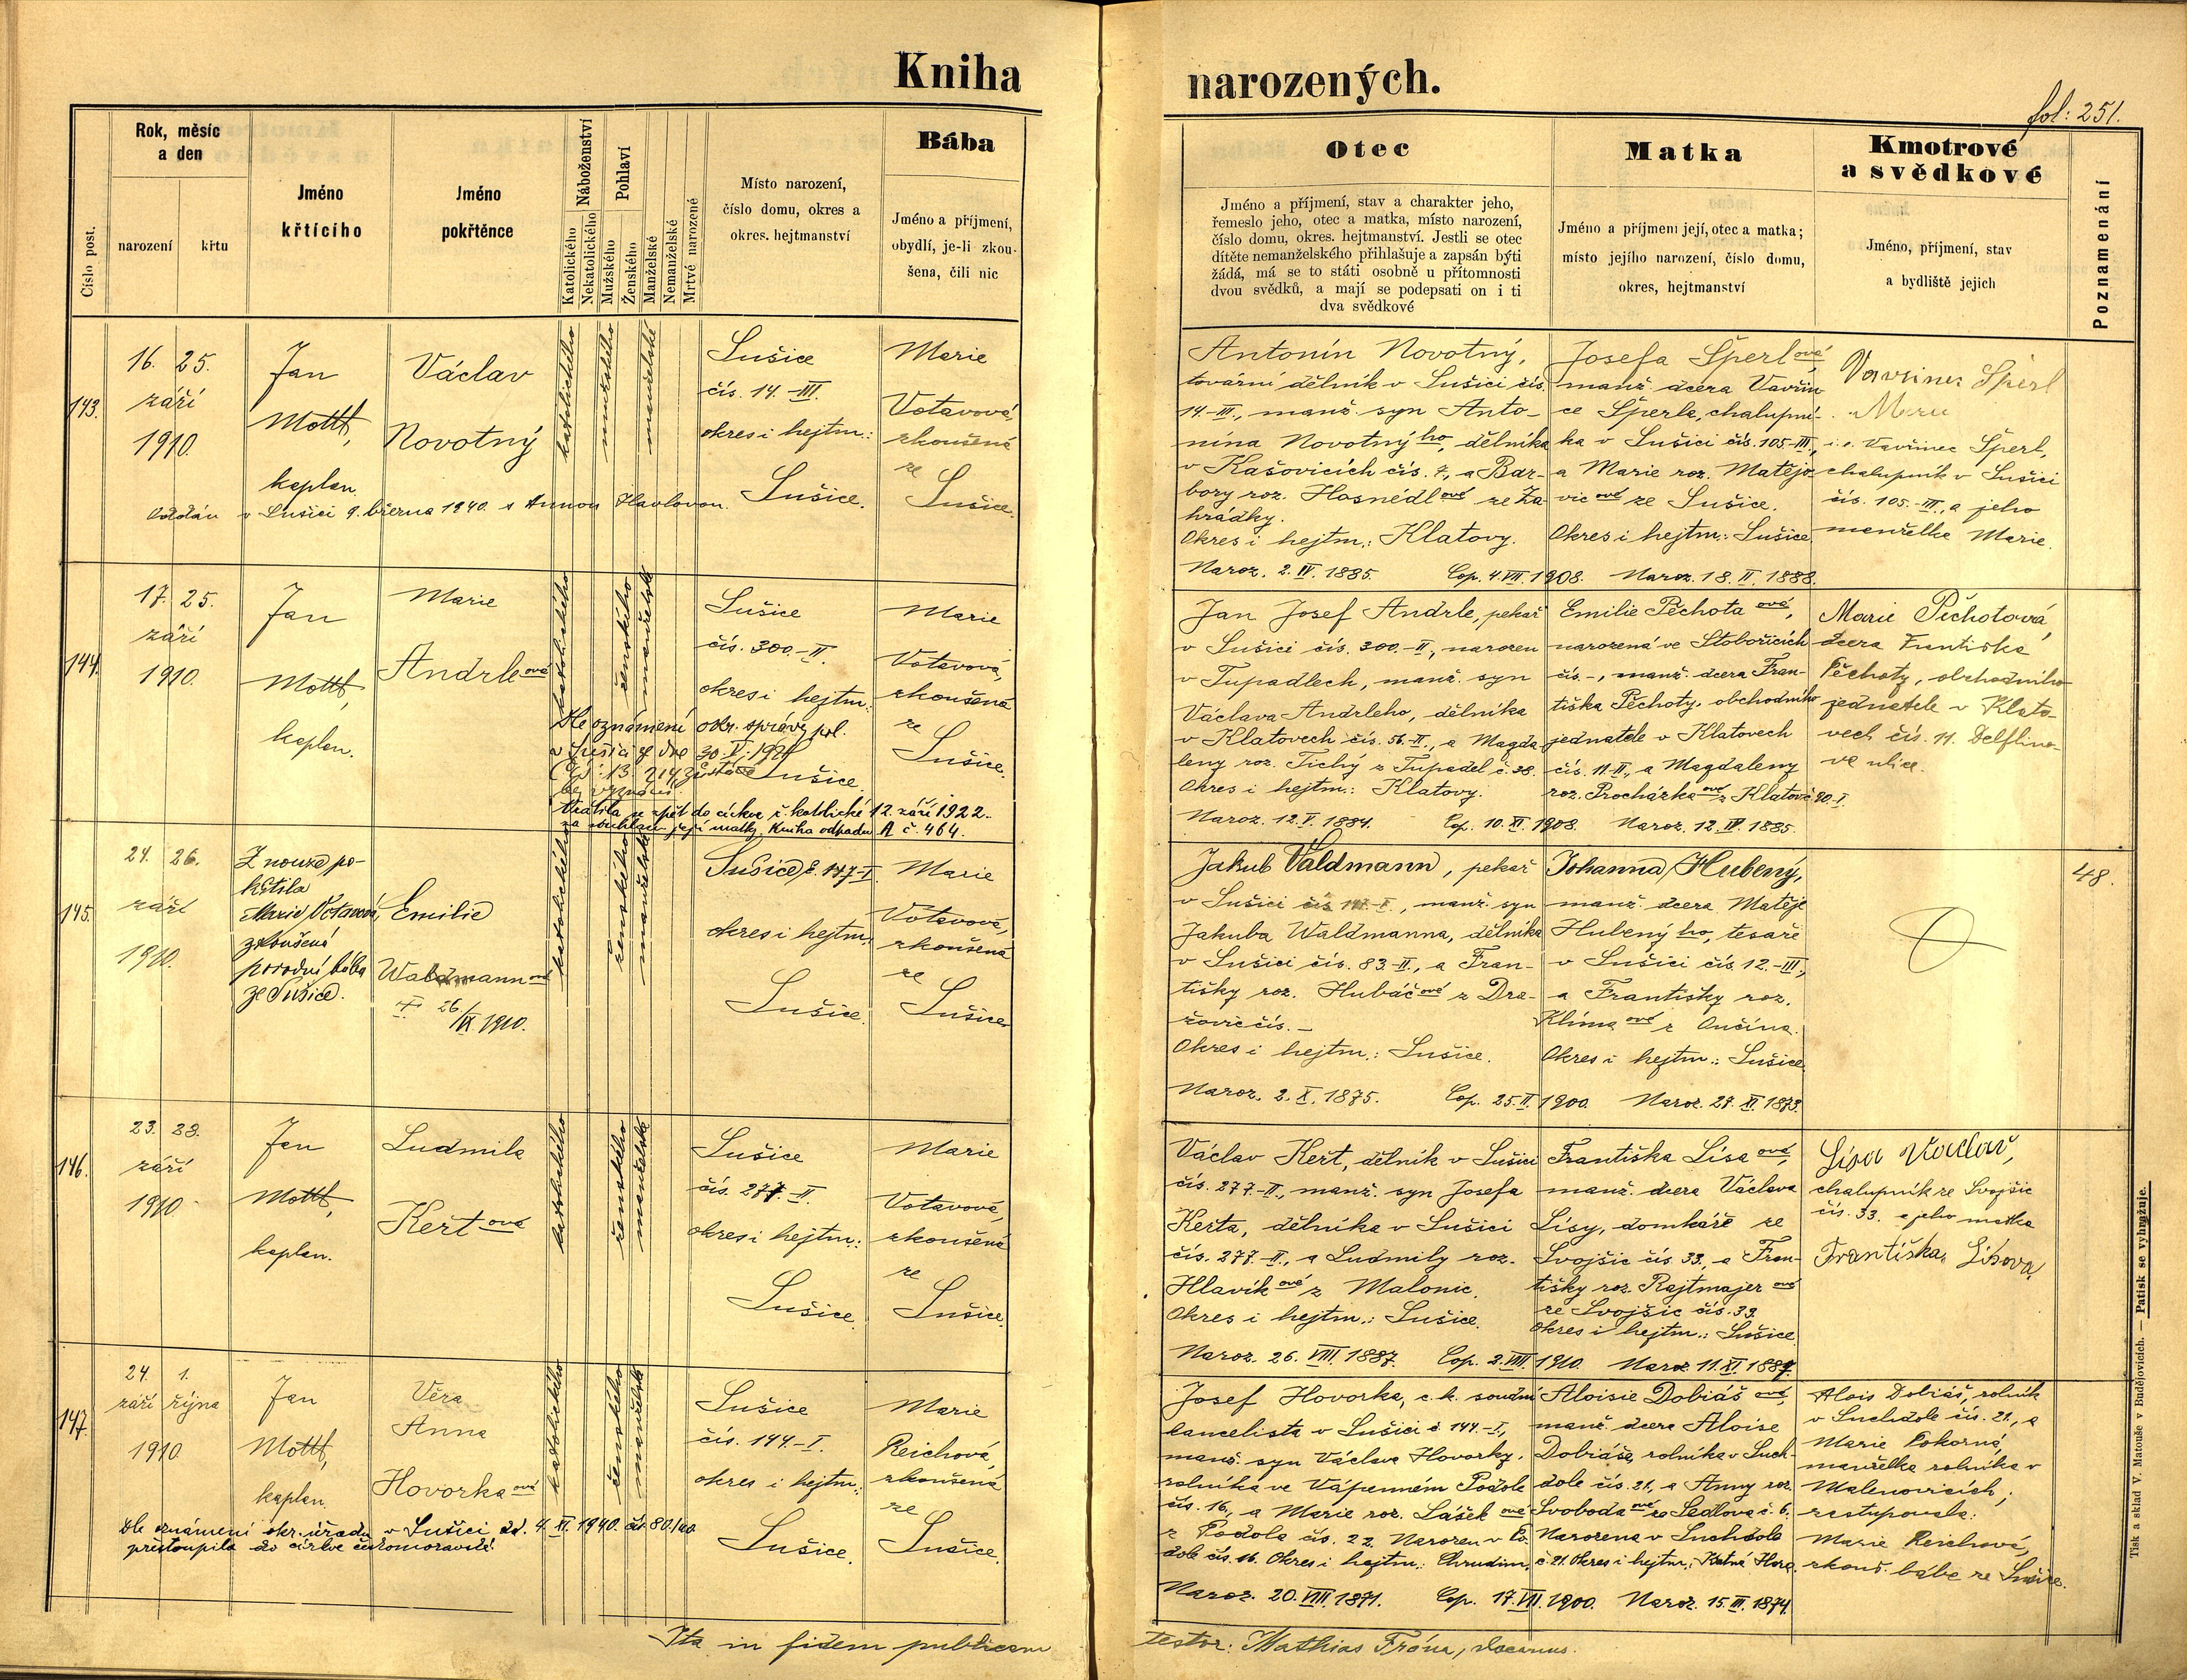 Kniha narozených.
fol: 251.
Číslo post.
Rok, měsíc
a den
narození
křtu
Jméno
křtícího
Jméno
pokřtěnce
Náboženství
Katolického
Nekatolického
Pohlaví
Mužského
Ženského
Manželské
Nemanželské
Mrtvě narozené
Místo narození,
číslo domu, okres a
okres. hejtmanství
Bába
Jméno a příjmení,
obydlí, je-li zkou-
šena, čili nic
Otec
Jméno a příjmení, stav a charakter jeho,
řemeslo jeho, otec a matka, místo narození,
číslo domu, okres. hejtmanství. Jestli se otec
dítěte nemanželského přihlašuje a zapsán býti
žádá, má se to státi osobně u přítomnosti
dvou svědků, a mají se podepsati on i ti
dva svědkové
Matka
Jméno a příjmení její, otec a matka;
místo jejího narození, číslo domu,
okres, hejtmanství
Kmotrové
a svědkové
Jméno, příjmení, stav
a bydliště jejich
Poznamenání
143.
16. 25.
září
1910.
Jan
Mottl,
kaplan.
Václav
Novotný
katolického
mužského
manželské
Sušice
čís. 14.-III.
okres i hejtm.:
Sušice.
Marie
Votavová,
zkoušená
ze
Sušice.
Oddán v Sušici 9. března 1940. s Annou Havlovou.
Antonín Novotný,
tovární dělník v Sušici čís.
14.-III., manž. syn Anto-
nína Novotného, dělníka
v Kašovicích čís. 7., a Bar-
bory roz. Hosnédlové ze Za-
hrádky.
Okres i hejtm.: Klatovy.
Naroz. 2. IV. 1885. Cop. 4. VII. 1908. Naroz. 18. II. 1888.
Josefa Šperlová,
manž. dcera Vavřin-
ce Šperla, chalupní-
ka v Sušici čís. 105-III.,
a Marie roz. Matějo-
vicové ze Sušice.
Okres i hejtm.: Sušice.
Vavřinec Šperl
i. e. Vavřinec Šperl,
chalupník v Sušici
čís. 105.-III., a jeho
manželka Marie.
144.
17. 25.
září
1910.
Jan
Mottl,
kaplan.
Marie
Andrleová
katolického
ženského
manželské
Sušice
čís. 300.-II.
okres i hejtm.:
Sušice.
Marie
Votavová,
zkoušená
ze
Sušice.
Dle oznámení okr. správy pol.
v Sušici ze dne 30. V. 1921
bez vyznání.
Vrátila se zpět do církve ř. katolické 12. září 1922.
se souhlasem její matky. Kniha odpadu A č. 464.
Jan Josef Andrle, pekař
v Sušici čís. 300.-II., narozen
v Tupadlech, manž. syn
Václava Andrleho, dělníka
v Klatovech čís. 56.-II., a Magda-
leny roz. Tichý z Tupadel č. 38.
Okres i hejtm.: Klatovy.
Naroz. 12. V. 1884. Cop. 10. XI. 1908. Naroz. 12. IV. 1885.
Emilie Pěchotaová,
narozená ve Stobořicích
čís.-, manž. dcera Fran-
tiška Pěchoty, obchodního
jednatele v Klatovech
čís. 11.-II., a Magdaleny
roz. Procházkaové z Klatov č. 20-I.
Marie Pěchotová,
dcera Františka
Pěchoty, obchodního
jednatele v Klato-
vech čís. 11. Delfino-
va ulice.
145.
24. 26.
září
1910.
Z nouze po-
křtila
Marie Votavová,
zkoušená
porodní bába
ze Sušice.
Emilie
Waldmannová
† 26/IX. 1910.
katolického
ženského
manželské
Sušice, č. 147-I.
okres i hejtm.
Sušice.
Marie
Votavová,
zkoušená
ze
Sušice
Jakub Valdmann, pekař
v Sušici čís. 147.-I., manž. syn
Jakuba Waldmanna, dělníka
v Sušici čís. 83.-II., a Fran-
tišky roz. Hubáčové z Dra-
žovic čís. –
Okres i hejtm.: Sušice.
Naroz. 2. X. 1875. Cop. 25. II. 1900. Naroz. 27. XI. 1873.
Johanna Hubený,
manž. dcera Matěje
Hubeného, tesaře
v Sušici čís. 12.-III.,
a Františky roz.
Klimaové z Ančína.
Okres i hejtm.: Sušice
48.
146.
23. 28.
září
1910
Jan
Mottl,
kaplan.
Ludmila
Keřtová
katolického
ženského
manželské
Sušice
čís. 277.-II.
okres i hejtm.:
Sušice.
Marie
Votavová,
zkoušená
ze
Sušice.
Václav Keřt, dělník v Sušici
čís. 277.-II., manž. syn Josefa
Keřta, dělníka v Sušici
čís. 277.-II., a Ludmily roz.
Hlavíkové z Malonic.
Okres i hejtm.: Sušice.
Naroz. 26. VIII. 1887. Cop. 2. VIII. 1910. Naroz. 11. XI. 1887.
Františka Lísaová,
manž. dcera Václava
Lísy, domkáře ze
Svojšic čís. 33., a Fran-
tišky roz. Rajtmajerové
ze Svojšic čís. 33.
Okres i hejtm.: Sušice
Lisa Václav,
chalupník ze Svojšic
čís. 33. a jeho matka
Františka Lisova
147.
24. 1.
září října
1910
Jan
Mottl,
kaplan.
Věra
Anna
Hovorkaová
katolického
ženského
manželské
Sušice
čís. 144.-I.
okres i hejtm.:
Sušice.
Marie
Reichová,
zkoušená
ze
Sušice.
Dle oznámení okr. úřadu v Sušici dd. 4. XI. 1940. čís. 80.100
přestoupila do církve českomoravské.
Josef Hovorka, c. k. soudní
kancelista v Sušici č 144.-I.,
manž. syn Václava Hovorky,
rolníka ve Vápenném Podole
čís. 16., a Marie roz. Lášekové
z Podola čís. 22. Narozen v Po-
dole čís. 16. Okres i hejtm.: Chrudim.
Naroz. 20. VIII. 1871. Cop. 17. VII. 1900. Naroz. 15. III. 1874.
Aloisie Dobiášová,
manž. dcera Aloise
Dobiáše, rolníka v Such-
dole čís. 21., a Anny roz.
Svobodaové ze Sedlova č. 6.
Narozena v Suchdole
č. 21. Okres i hejtm.: Kutná Hora.
Alois Dobiáš, rolník
v Suchdole čís. 21., a
Marie Pokorná,
manželka rolníka v
Malenovicích;
zastupovala:
Marie Reichová,
zkouš. bába ze Sušice.
Ita in fidem publicam
testor: Mathias Fróna, decanus.
Tisk a sklad V. Matouše v Budějovicích. — Patisk se vyhrazuje.